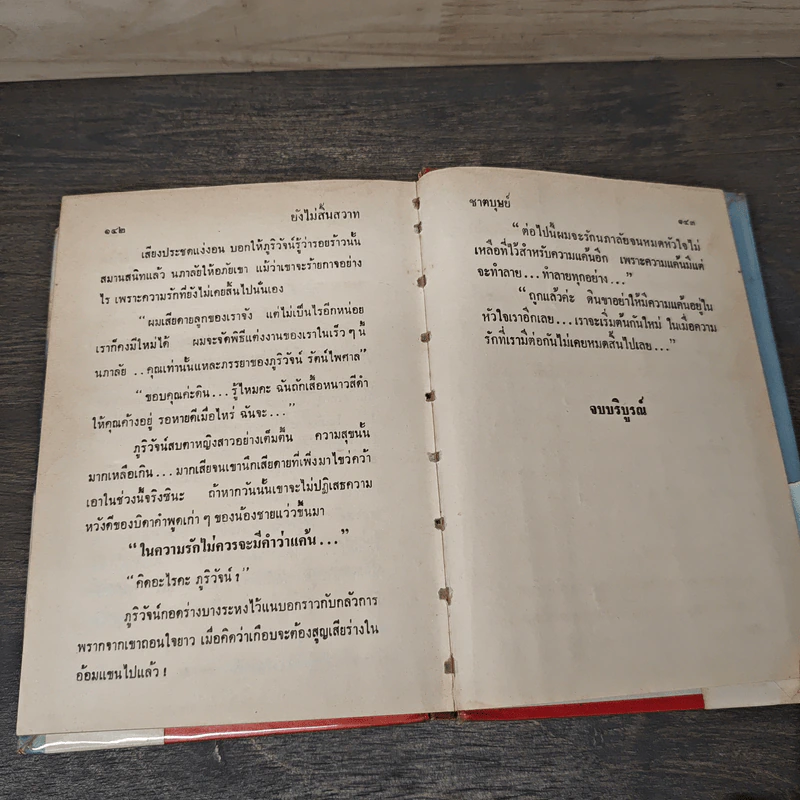 ๑๔๒
ยังไม่สิ้นสวาท
เสียงประชดแง่งอน บอกให้ภูริวัจน์รู้ว่ารอยร้าวนั้น
สมานสนิทแล้ว นภาลัยให้อภัยเขา แม้ว่าเขาจะร้ายกาจอย่าง
ไร เพราะความรักที่ยังไม่เคยสิ้นไปนั่นเอง
“ผมเสียดายลูกของเราจัง แต่ไม่เป็นไรอีกหน่อย
เราก็คงมีใหม่ได้ ผมจะจัดพิธีแต่งงานของเราในเร็ว ๆ นี้
นภาลัย . . คุณเท่านั้นแหละภรรยาของภูริวัจน์ รัตน์ไพศาล”
“ขอบคุณค่ะดิน . . . รู้ไหมคะ ฉันถักเสื้อหนาวสีดำ
ให้คุณค้างอยู่ รอหายดีเมื่อไหร่ ฉันจะ . . .”
ภูริวัจน์สบตาหญิงสาวอย่างเต็มตื้น ความสุขนั้น
มากเหลือเกิน . . . มากเสียจนเขานึกเสียดายที่เพิ่งมาไขว่คว้า
เอาในช่วงนี้จริงซินะ ถ้าหากวันนั้นเขาจะไม่ปฏิเสธความ
หวังดีของบิดาคำพูดเก่า ๆ ของน้องชายแว่วขึ้นมา
“ในความรักไม่ควรจะมีคำว่าแค้น . . .”
“คิดอะไรคะ ภูริวัจน์ !”
ภูริวัจน์กอดร่างบางระหงไว้แนบอกราวกับกลัวการ
พรากจากเขาถอนใจยาว เมื่อคิดว่าเกือบจะต้องสูญเสียร่างใน
อ้อมแขนไปแล้ว !
ชาตบุษย์
๑๔๓
“ต่อไปนี้ผมจะรักนภาลัยจนหมดหัวใจไม่
เหลือที่ไว้สำหรับความแค้นอีก เพราะความแค้นมีแต่
จะทำลาย . . . ทำลายทุกอย่าง . . .”
“ถูกแล้วค่ะ ดินขาอย่าให้มีความแค้นอยู่ใน
หัวใจเราอีกเลย . . . เราจะเริ่มต้นกันใหม่ ในเมื่อความ
รักที่เรามีต่อกันไม่เคยหมดสิ้นไปเลย . . .”
จบบริบูรณ์